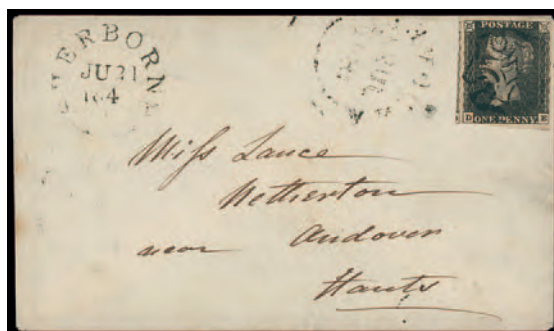 SHERBORNE
JU 21
184
POSTAGE
D E
ONE PENNY
Miſs Lance
Netherton
near Andover
Hants